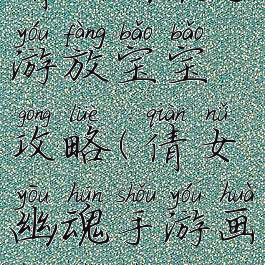 yóu fàng bǎo bǎo
游放宝宝
gōng lüè : qiàn nǚ
攻略(倩女
yōu hún shǒu yóu huà
幽魂手游画